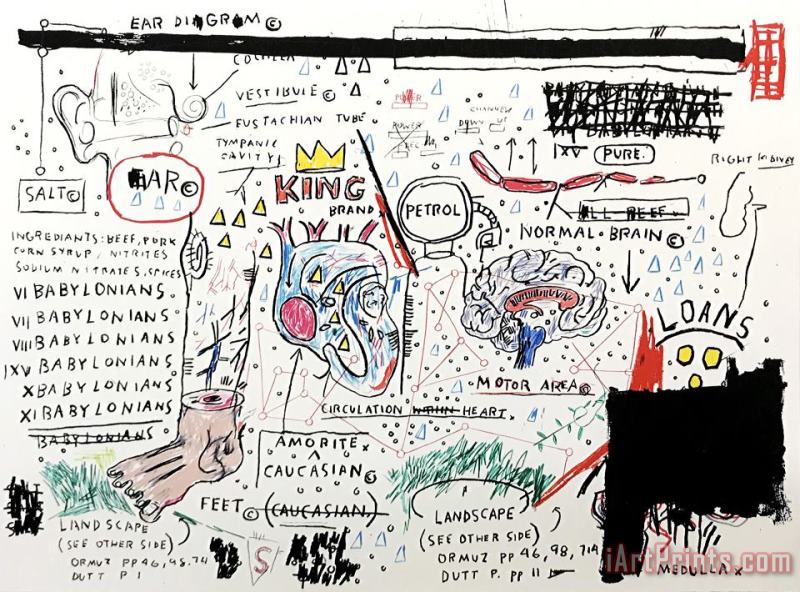 EAR DIAGRAM©
COCHLEA
VESTIBULE©
EUSTACHIAN TUBE
TYMPANIC
CAVITY
SALT©
EAR©
KING
BRAND
POWER
POWER
CHANNEL
DOWN UP
PETROL
BABYLONIANS
IXV PURE.
ALL BEEF
NORMAL BRAIN©
RIGHT KIDNEY
INGREDIANTS: BEEF, PORK
CORN SYRUP, NITRITES
SODIUM NITRATES, SPICES
VI BABYLONIANS
VII BABYLONIANS
VIII BABYLONIANS
IXV BABYLONIANS
X BABYLONIANS
XI BABYLONIANS
BABYLONIANS
LOANS
MOTOR AREA©
CIRCULATION WITHIN HEART.
AMORITE x
CAUCASIAN©
FEET© (CAUCASIAN)
LANDSCAPE
(SEE OTHER SIDE)
ORMUZ PP 46, 98. 74
DUTT P 1
S
LANDSCAPE
(SEE OTHER SIDE)
ORMUZ PP 46, 98, 71A
DUTT P. PP 11
MEDULLA x
iArtPrints.com